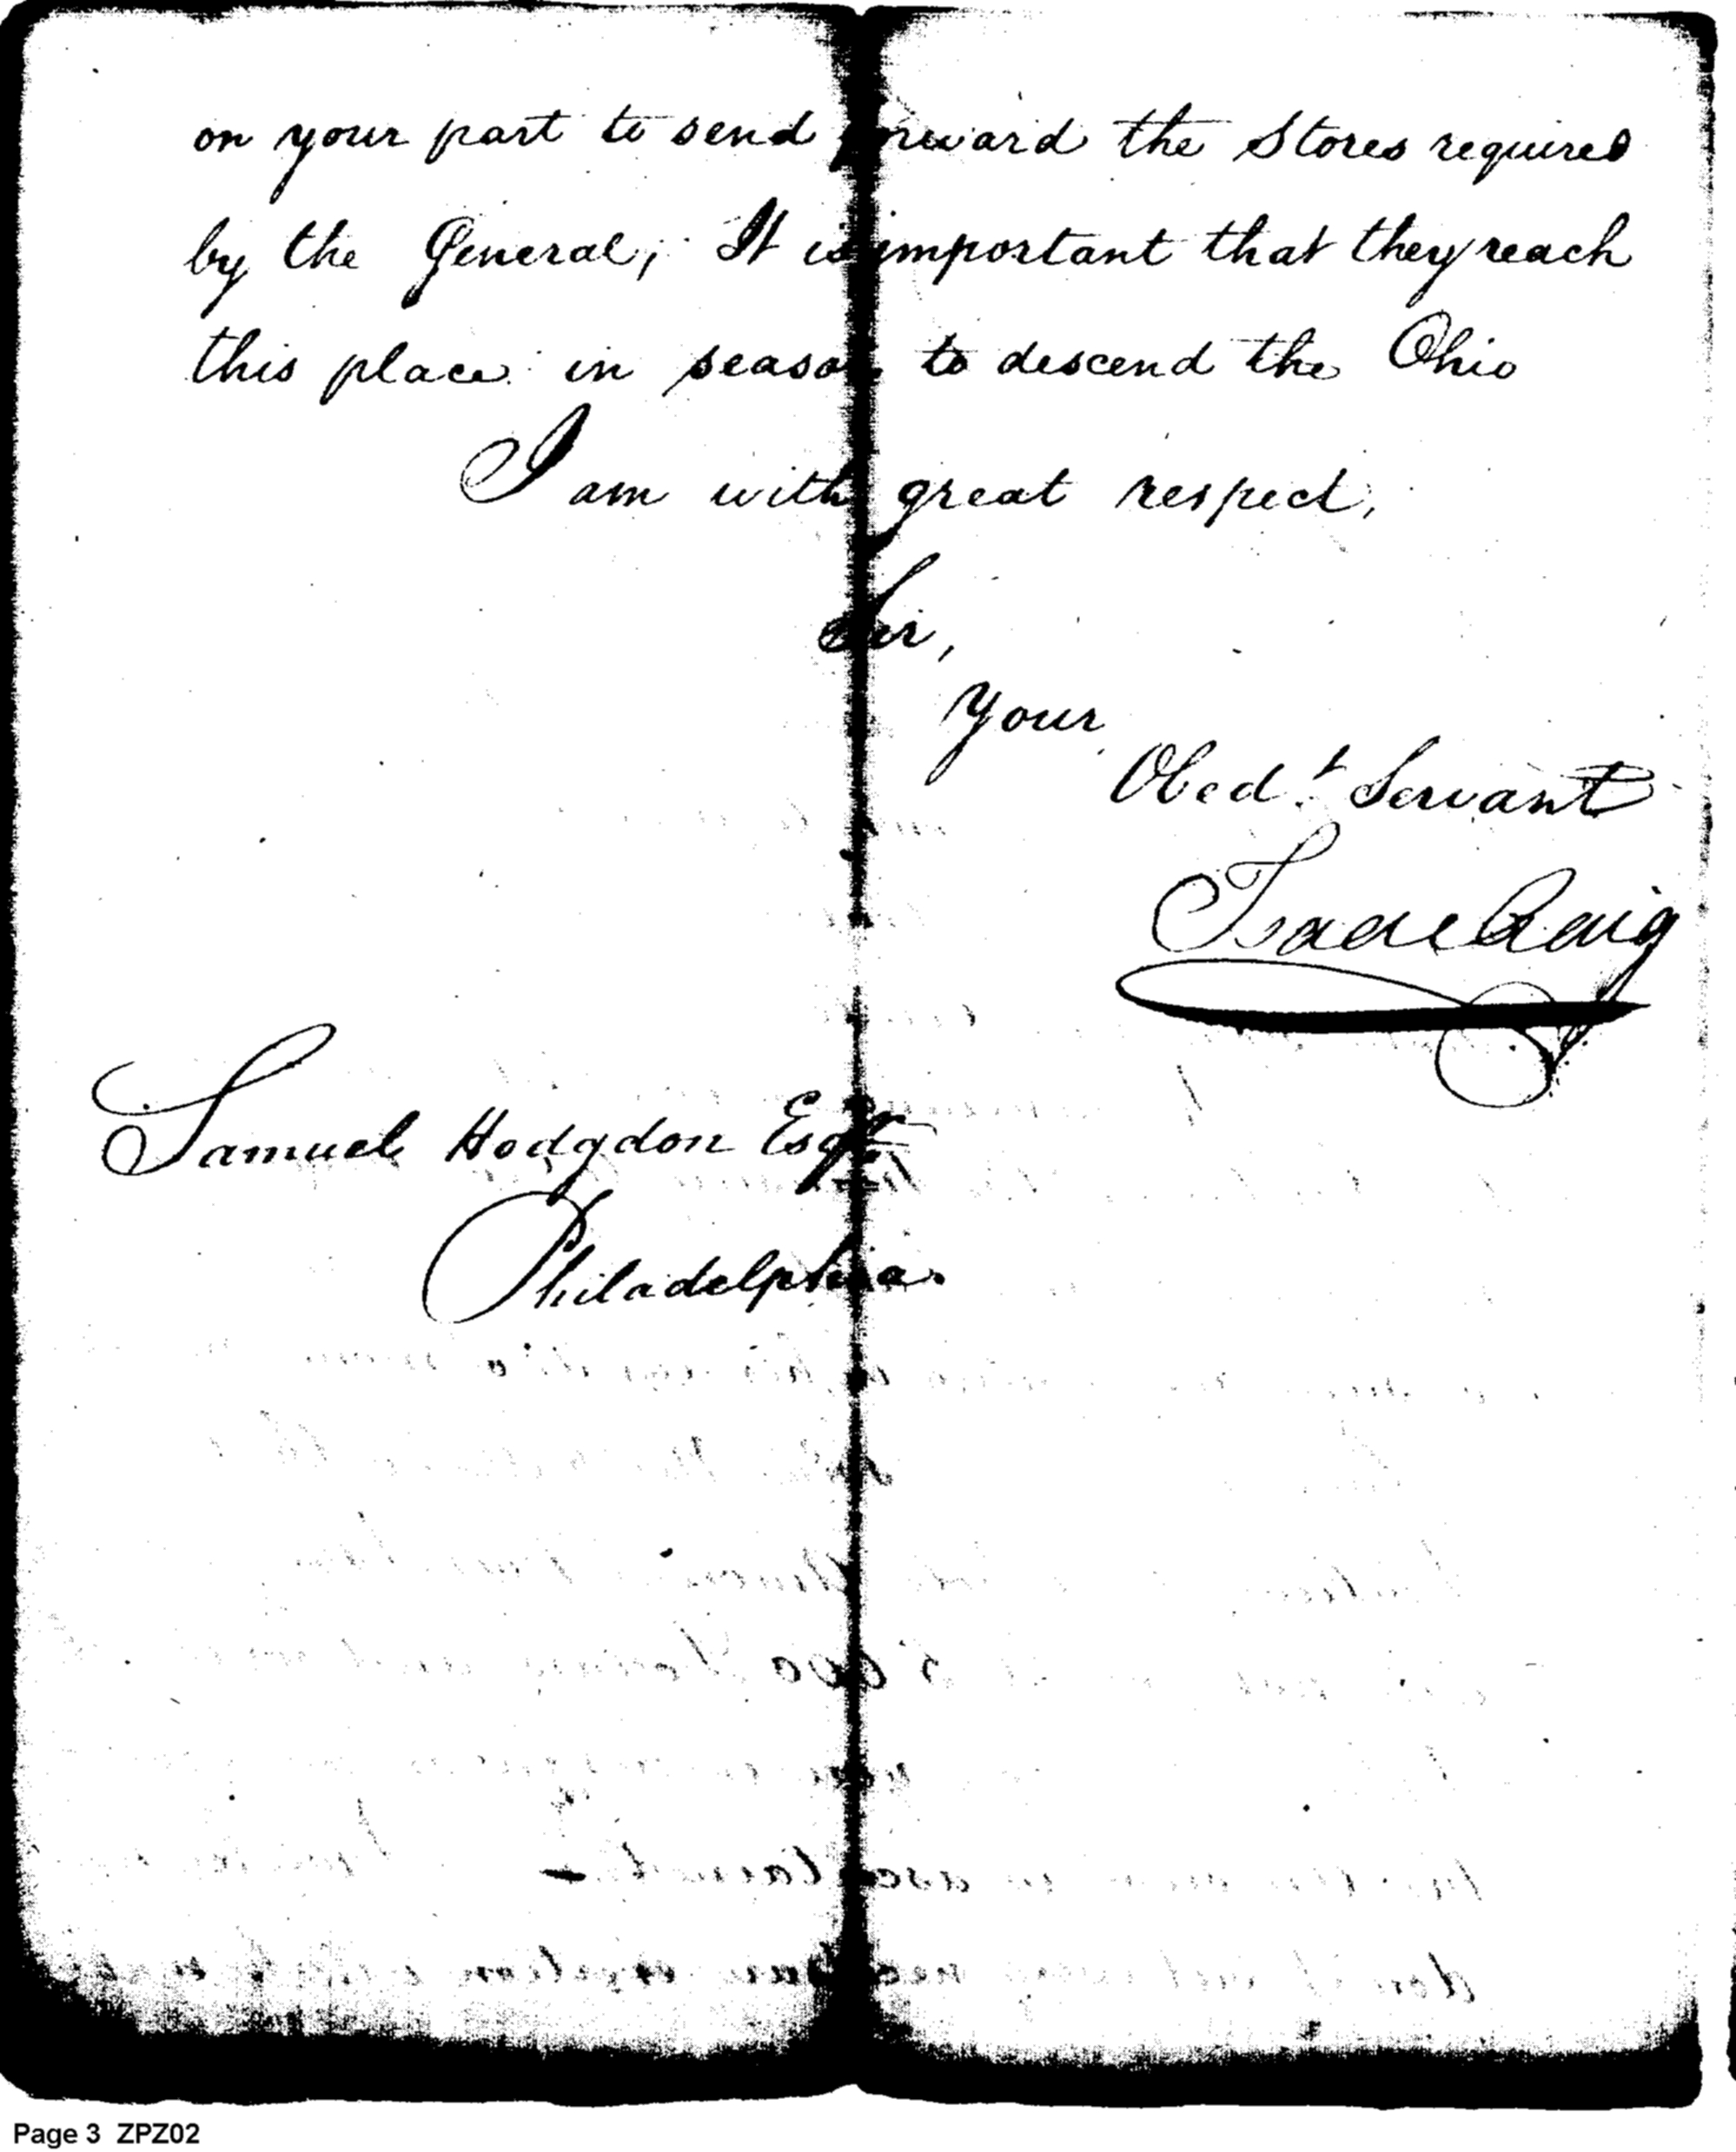 on your part to send forward the Stores required
by the General; It is important that they reach
this place in season to descend the Ohio
I am with great respect,
Sir,
your
Obedt Servant
Isaac Craig
Samuel Hodgdon Esqr
Philadelphia
Page 3 ZPZ02